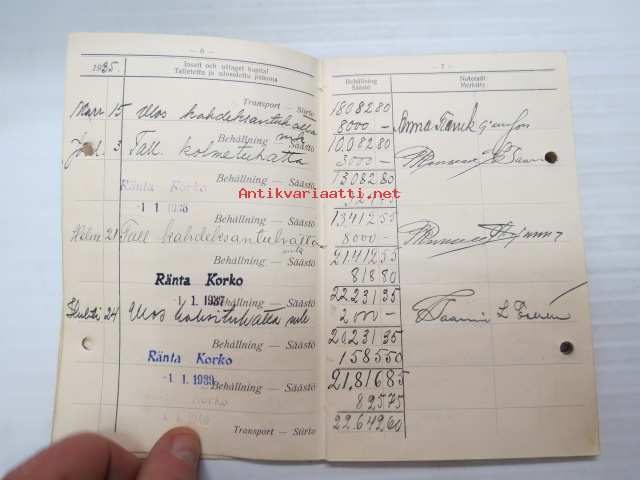 — 6 —
1935.
Insatt och uttaget kapital
Talletettu ja ulosotettu pääoma
Transport — Siirto
Marr. 15 Ulos kahdeksantuhatta
mk
Behållning — Säästö
3 Tall. kolmetuhatta
Behållning — Säästö
Ränta Korko
- 1 1 1936
Behållning — Säästö
Helm 21 Tall kahdeksantuhatta
mk
Behållning — Säästö
Ränta Korko
- 1 1. 1937
Behållning — Säästö
24 Ulos mk
Behållning — Säästö
Ränta Korko
- 1 1. 1939
Behållning — Säästö
Ränta Korko
Transport — Siirto
— 7 —
Behållning
Säästö
Noteradt
Merkitty
18082 80
8000 — Anna
10082 80
3000 —
13082 80
13412 55
8000 —
21412 55
818 80
22231 35
2000 —
20231 35
1585 50
21816 85
825 75
22642 60
Antikvariaatti.net